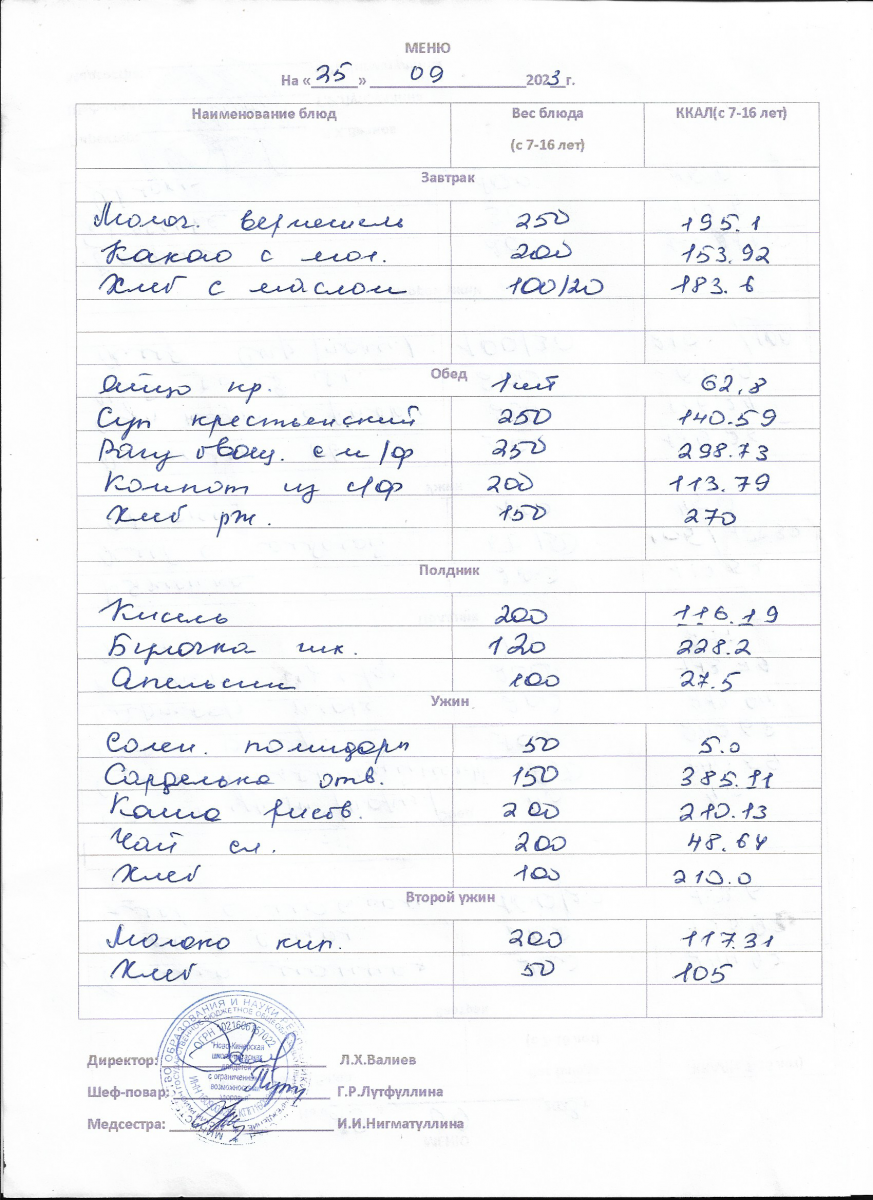 МЕНЮ
На «25» 09 2023г.
Наименование блюд Вес блюда (с 7-16 лет) ККАЛ(с 7-16 лет)
Завтрак
Молоч. вермишель 250 195.1
Какао с мол. 200 153.92
Хлеб с маслом 100/20 183.6
Обед
Яйцо кр. 1шт 62,8
Суп крестьенский 250 140.59
Рагу овощ. с м/ф 250 298.73
Компот из с/ф 200 113.79
Хлеб рж. 150 270
Полдник
Кисель 200 116.19
Булочка шк. 120 228.2
Апельсин 100 27.5
Ужин
Солен. помидоры 50 5.0
Сарделька отв. 150 385.11
Каша рисов. 200 210.13
Чай сл. 200 48.64
Хлеб 100 210.0
Второй ужин
Молоко кип. 200 117.31
Хлеб 50 105
Директор: Л.Х.Валиев
Шеф-повар: Г.Р.Лутфуллина
Медсестра: И.И.Нигматуллина